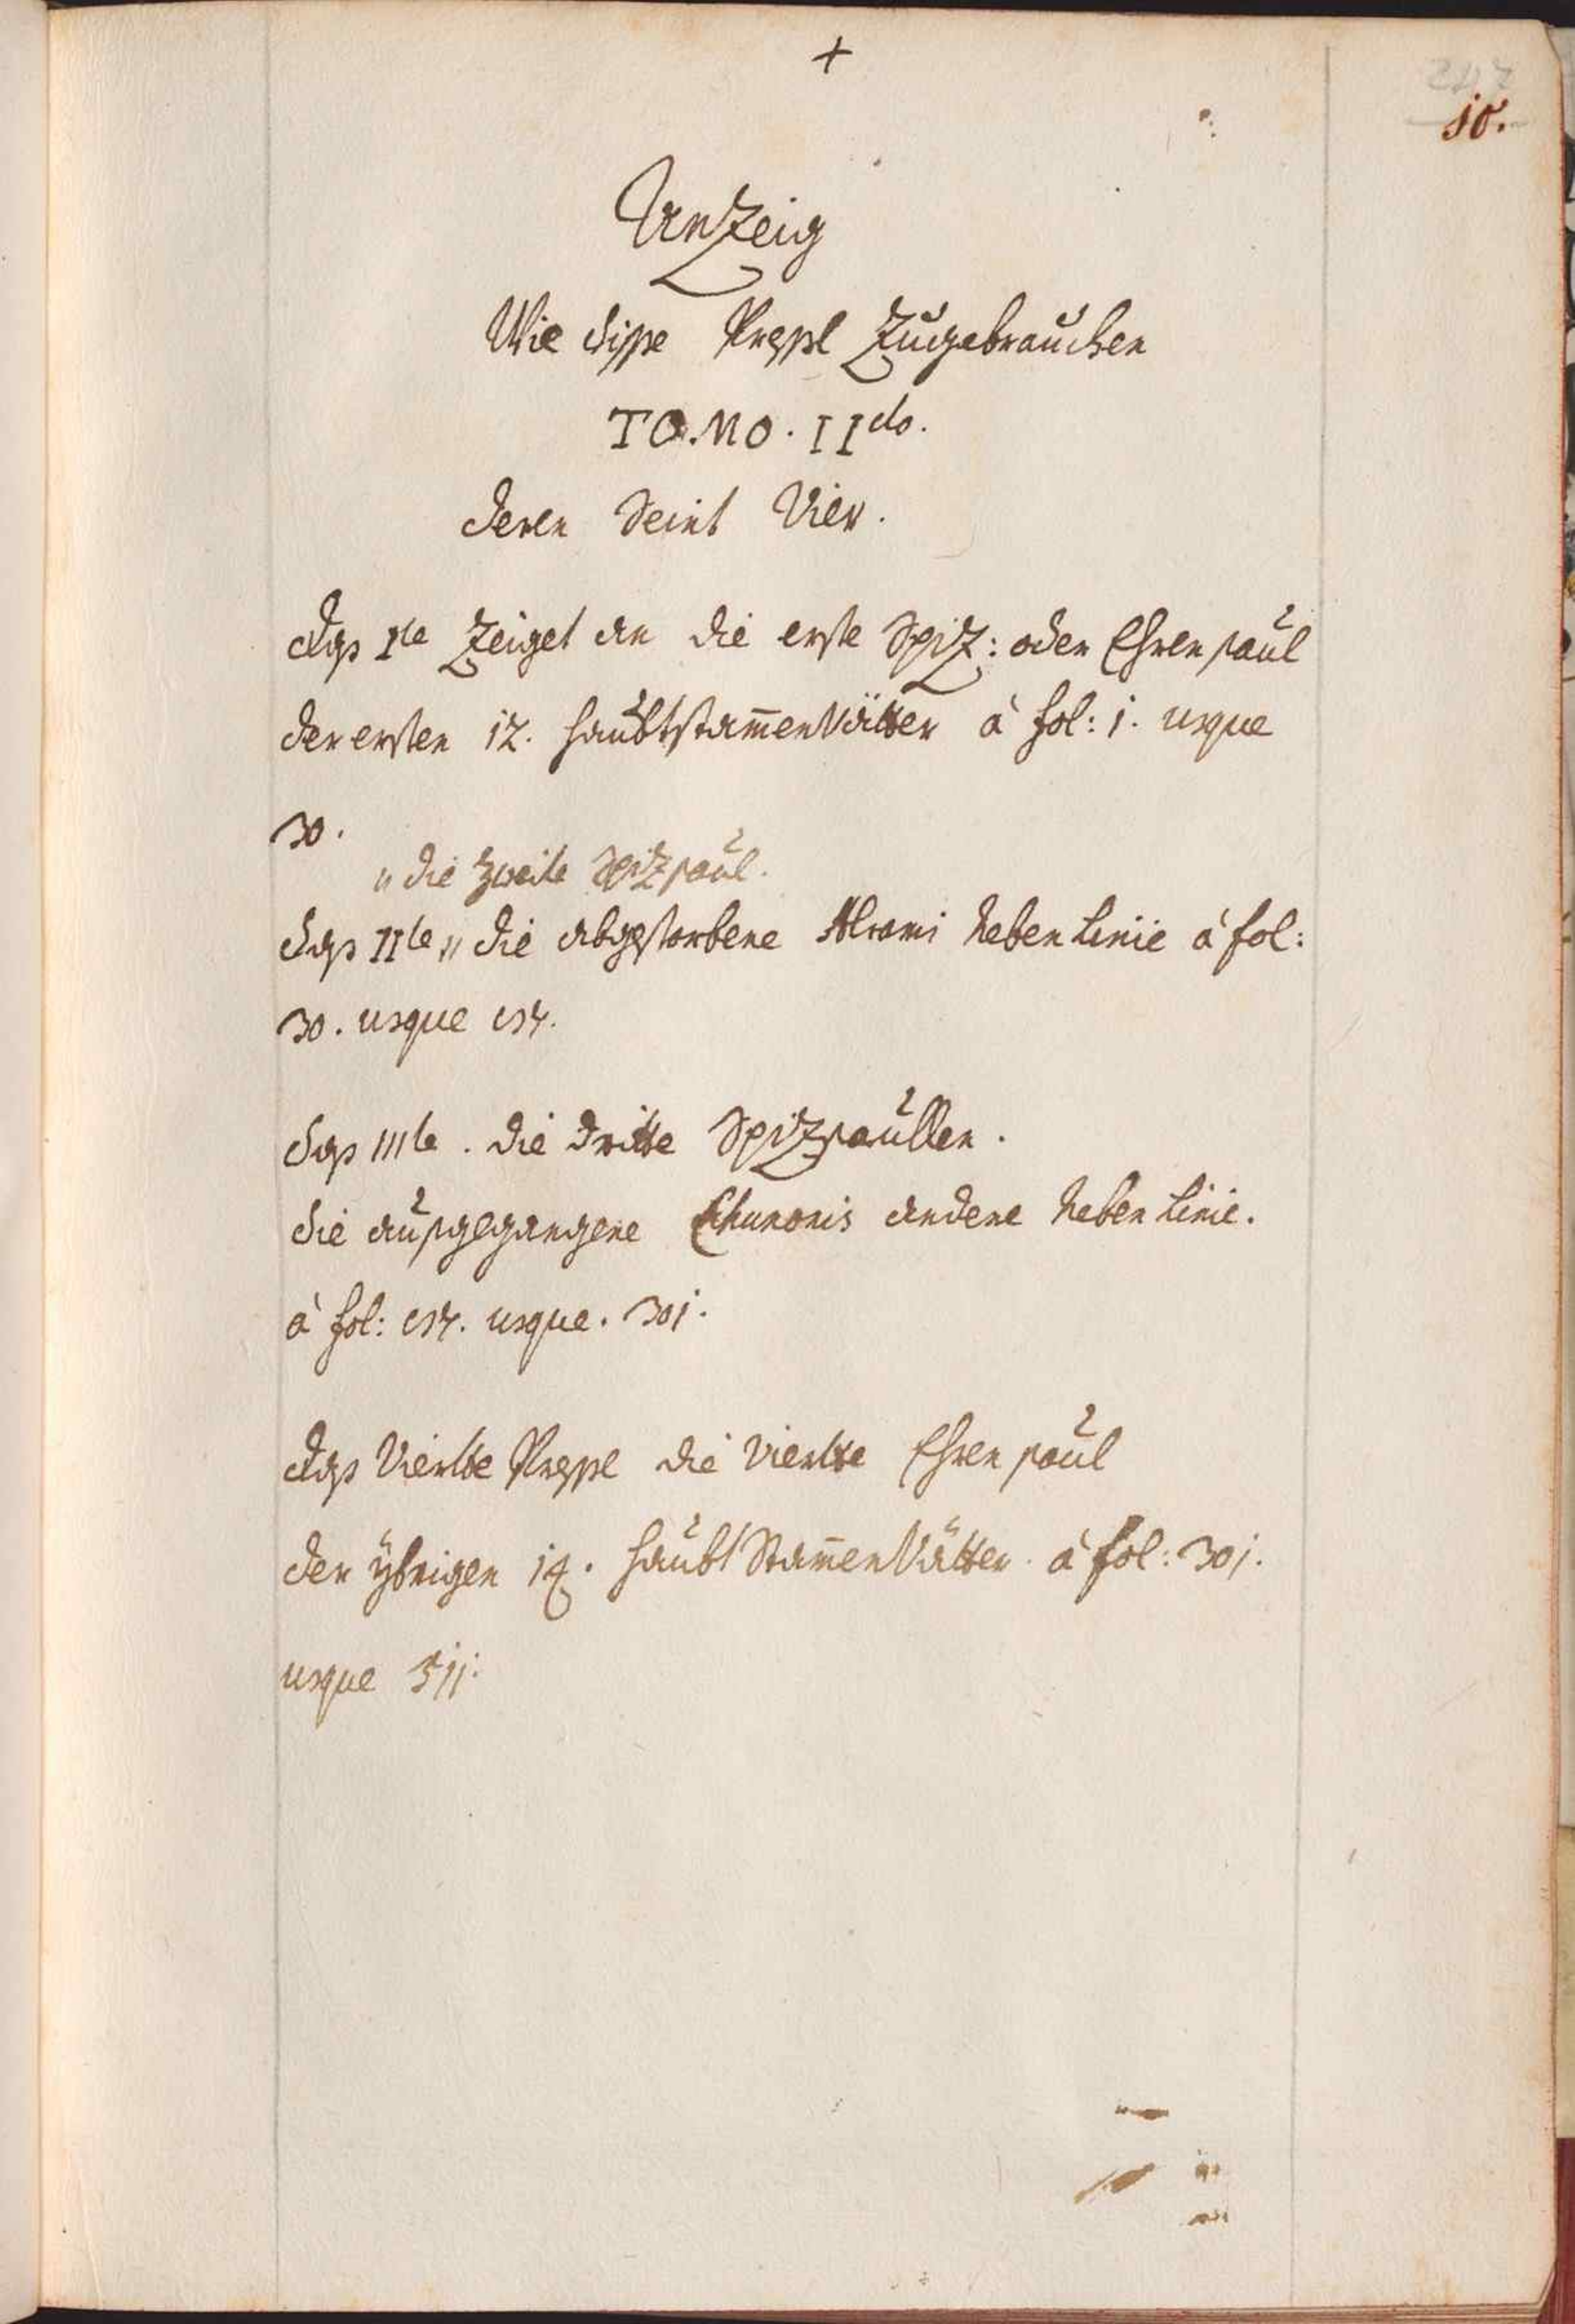 +
247
10.
Anzeig
Wie disße Zugebrauchen
TOMO. IIdo.
deren Seint Vier.
Das Ite Zeiget an die erste SpiZ: oder Ehrensaul
der ersten 12. haubtstam̅enVätter à fol: 1. usque
30.
" die Zweite SpiZsaul.
das IIte " die abgestorbene Nebenlinie à fol:
30. usque
das IIIte. die dritte SpiZsaullen.
die außgegangene Chunonis andere Neben Linie.
à fol: usque. 301.
Das Vierdte die Vierdte Ehrensaul
der ÿbrigen haubt Stam̅enVätter. à fol: 301.
usque 511.